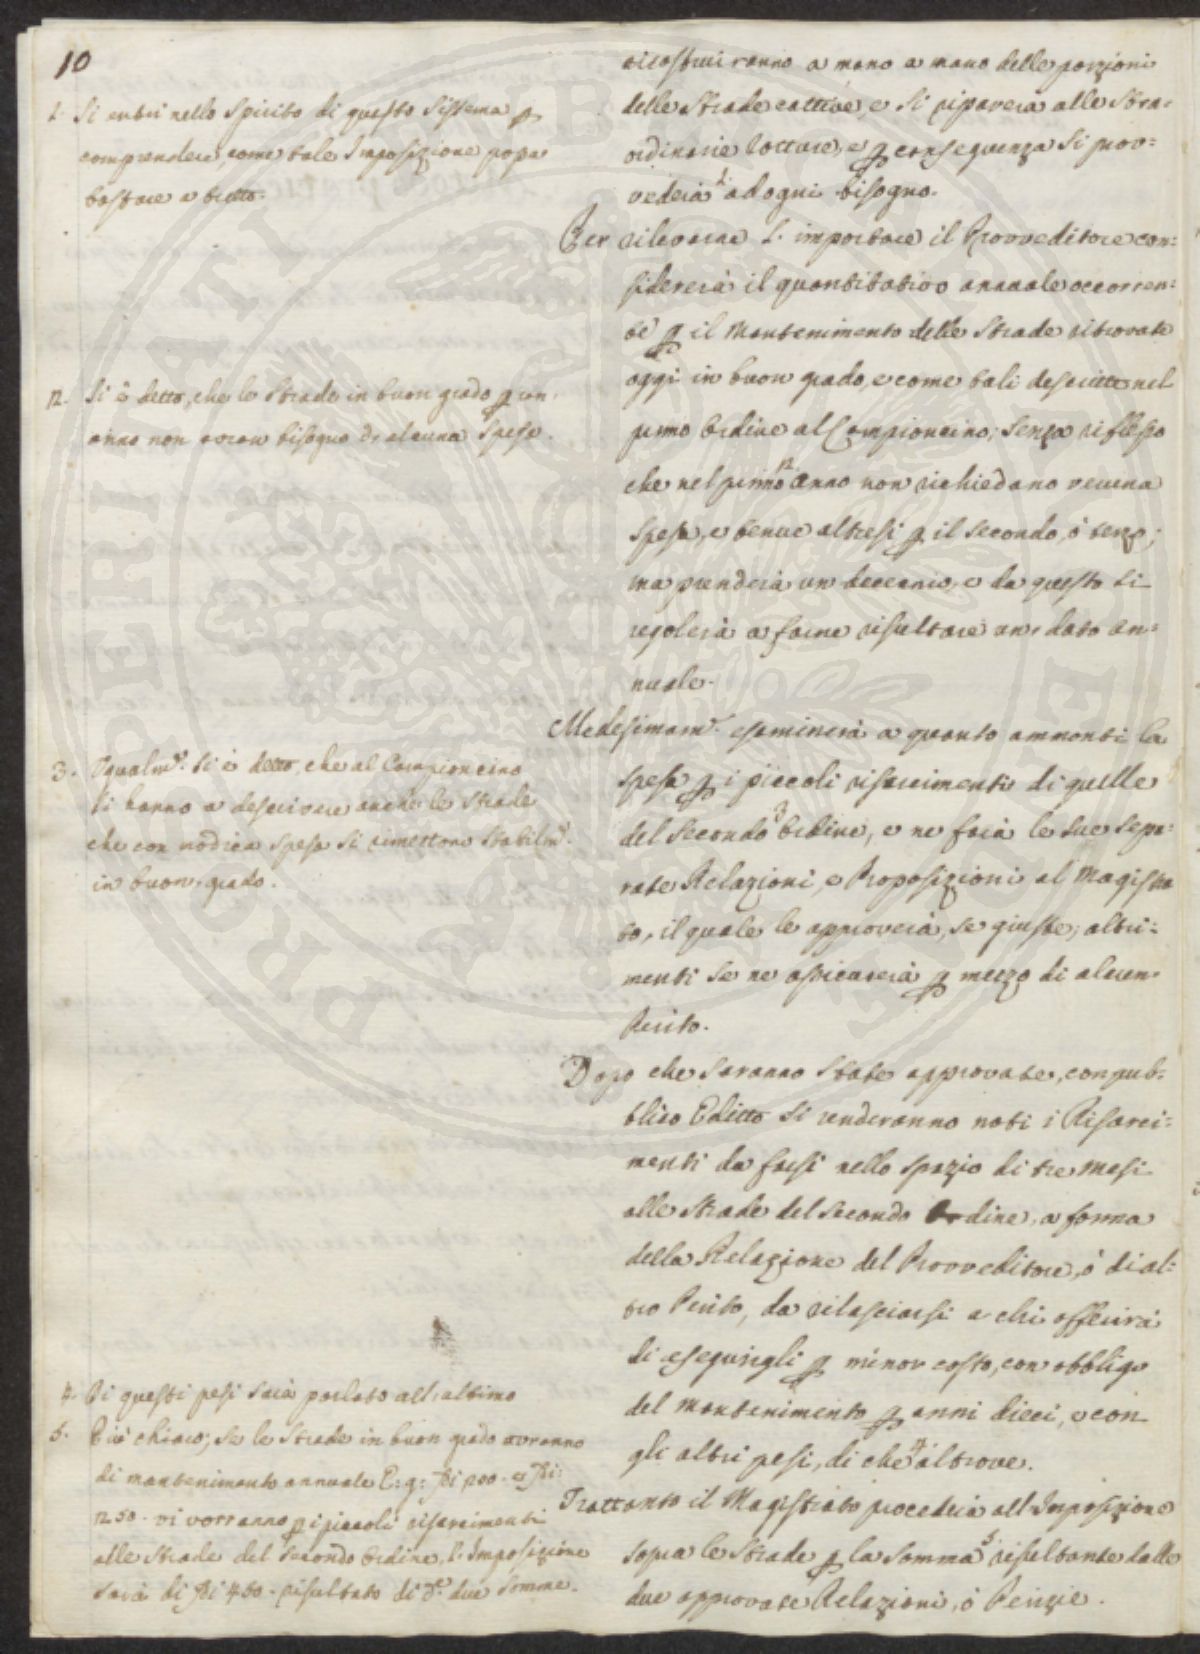 10
1. Si entri nello Spirito di questo Sistema p
comprendere, come tale Imposizione possa
bastare a tutto.
2. Si è detto, che le Strade in buon grado p un
anno non avran bisogno di alcuna Spesa.
3. Egualm.e si è detto, che al Campioncino
si hanno a descrivere anche le Strade
che con modica spesa si rimettono stabilm.e
in buon grado.
4. Di questi pesi sarà parlato all'ultimo
5. E ciò chiaro; se le Strade in buon grado avranno
di mantenimento annuale E: g:
250. vi vorranno p i piccoli risarcimenti
alle Strade del Secondo Ordine, l'Imposizione
sarà di 450. risultato di d.e due Somme.
ricostruiranno a mano a mano delle porzioni
delle Strade cattive, e si riparerà alle Stra=
ordinarie rotture, e p conseguenza si prov=
vederà 1 ad ogni bisogno.
Per rilevarne l'importare il Provveditore con=
sidererà il quantitativo annuale occorren=
te p il Mantenimento delle Strade ritrovate
oggi in buon grado, e come tali descritte nel
primo Ordine al Campioncino; Senza riflesso
che nel primo 2 anno non richiedano veruna
Spesa, e tenue altresì p il secondo, ò terzo;
ma prenderà un deccenio, e da questo si
regolerà a farne risultare un dato an=
nuale.
Medesimam.e esaminerà a quanto ammonti la
spesa p i piccoli risarcimenti di quelle
del Secondo 3 Ordine, e ne farà le sue sepa=
rate Relazioni, e Proposizioni al Magistra
to, il quale le approverà, se giuste; altri=
menti se ne assicurerà p mezzo di alcun
Perito.
Dopo che saranno state approvate, con pub=
blico Editto si renderanno noti i Risarci=
menti da farsi nello spazio di tre mesi
alle Strade del Secondo Ordine, a forma
della Relazione del Provveditore, ò di al=
tro Perito, da rilasciarsi a chi offerirà
di eseguirgli p minor costo, con obbligo
del Mantenimento p anni dieci, e con
gli altri pesi, di che 4 altrove.
Trattanto il Magistrato procederà all'Imposizione
sopra le Strade p la Somma 5 risultante dalle
due approvate Relazioni, ò Perizie.
PROSPERITATI PUBLICAE